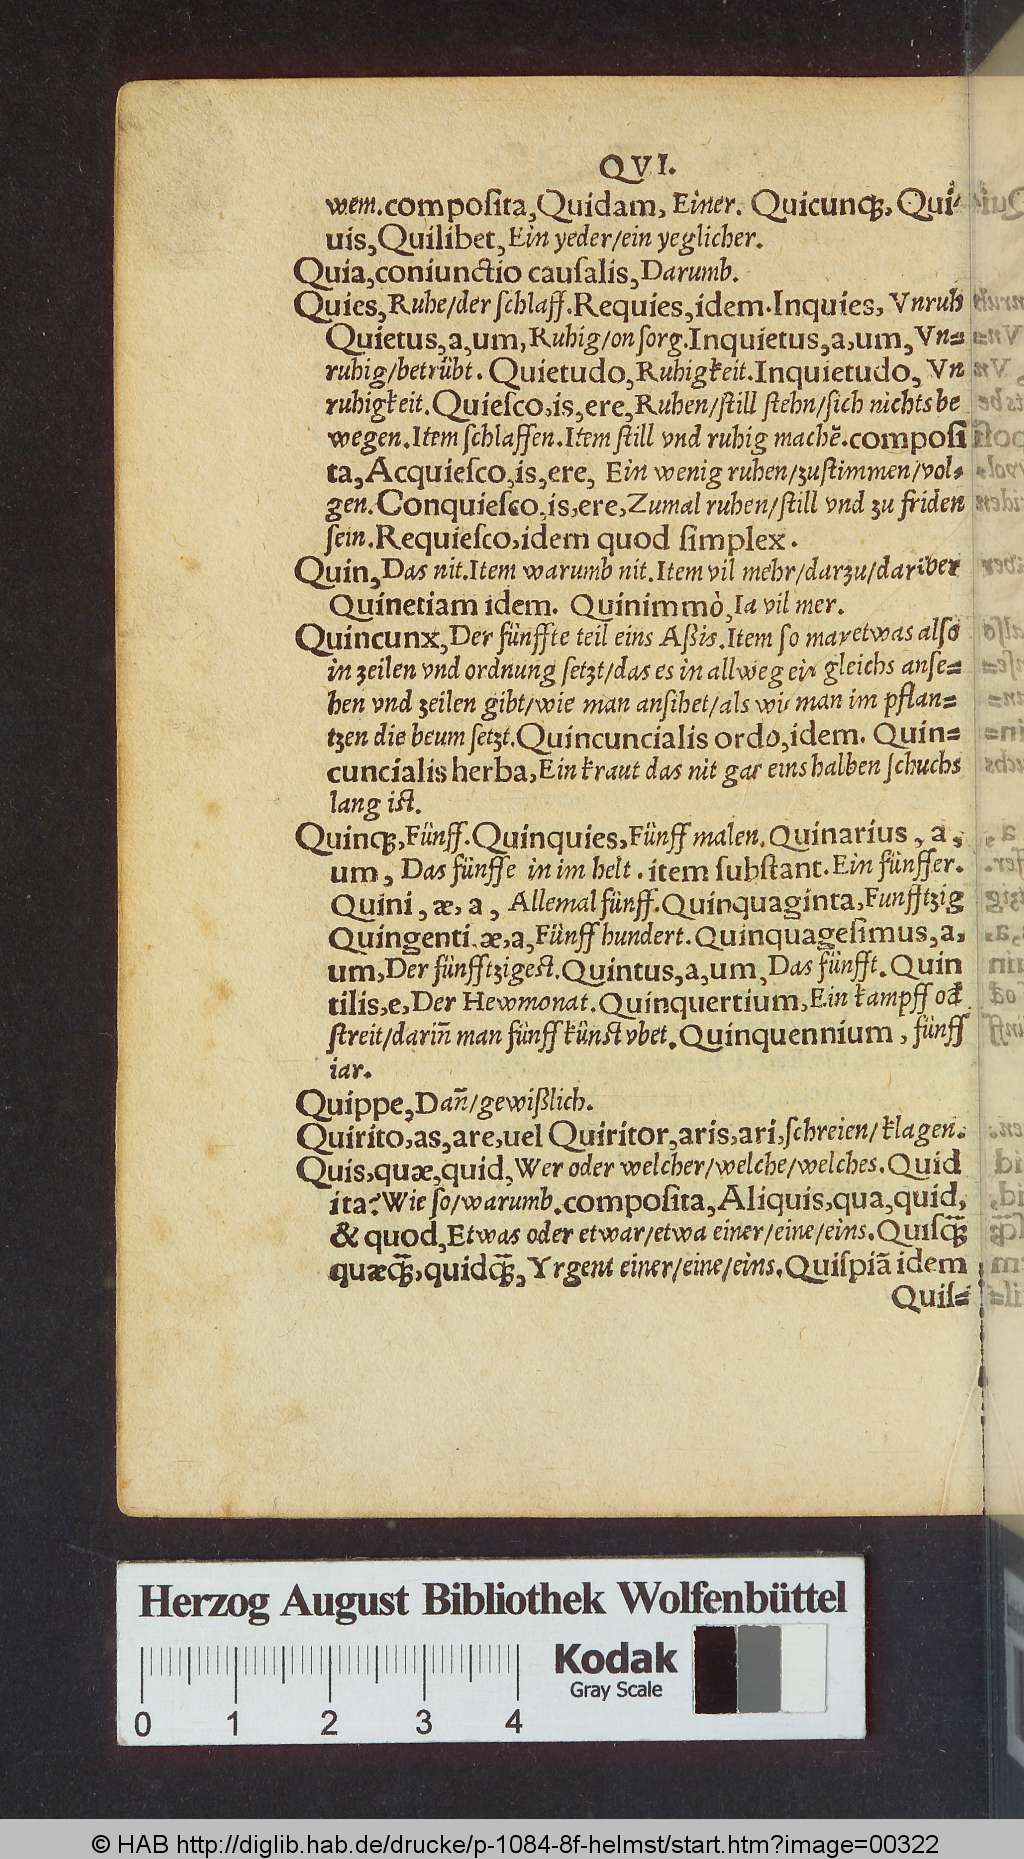 QVI.
wem. composita, Quidam, Einer. Quicunqꝫ, Qui-
uis, Quilibet, Ein yeder/ein yeglicher.
Quia, coniunctio causalis, Darumb.
Quies, Ruhe/der schlaff. Requies, idem. Inquies, Vnruh
Quietus, a, um, Ruhig/on sorg. Inquietus, a, um, Vn=
ruhig/betrübt. Quietudo, Ruhigkeit. Inquietudo, Vn
ruhigkeit. Quiesco, is, ere, Ruhen/still stehn/sich nichts be
wegen. Item schlaffen. Item still vnd ruhig machẽ. composi
ta, Acquiesco, is, ere, Ein wenig ruhen/zustimmen/vol-
gen. Conquiesco, is, ere, Zumal ruhen/still vnd zu friden
sein. Requiesco, idem quod simplex.
Quin, Das nit. Item warumb nit. Item vil mehr/darzu/dariber
Quinetiam idem. Quinimmò, Ia vil mer.
Quincunx, Der fünffte teil eins Aßis. Item so man etwas also
in zeilen vnd ordnung setzt/das es in allweg ein gleichs anse=
hen vnd zeilen gibt/wie man ansihet/als wie man im pflan=
tzen die beum setzt. Quincuncialis ordo, idem. Quin=
cuncialis herba, Ein kraut das nit gar eins halben schuchs
lang ist.
Quinqꝫ, Fünff. Quinquies, Fünff malen. Quinarius, a,
um, Das fünffe in im helt. item substant. Ein fünffer.
Quini, æ, a, Allemal fünff. Quinquaginta, Funfftzig
Quingenti, æ, a, Fünff hundert. Quinquagesimus, a,
um, Der fünfftzigest. Quintus, a, um, Das fünfft. Quin
tilis, e, Der Hewmonat. Quinquertium, Ein kampff od̃
streit/dariñ man fünff künst vbet. Quinquennium, fünff
iar.
Quippe, Dañ/gewißlich.
Quirito, as, are, uel Quiritor, aris, ari, schreien/klagen.
Quis, quæ, quid, Wer oder welcher/welche/welches. Quid
ita? Wie so/warumb. composita, Aliquis, qua, quid,
& quod, Etwas oder etwar/etwa einer/eine/eins. Quisqꝫ̃
quæqꝫ̃, quidqꝫ̃, Yrgent einer/eine/eins. Quispiã idem
Quis=
Herzog August Bibliothek Wolfenbüttel
Kodak
Gray Scale
0 1 2 3 4
© HAB http://diglib.hab.de/drucke/p-1084-8f-helmst/start.htm?image=00322